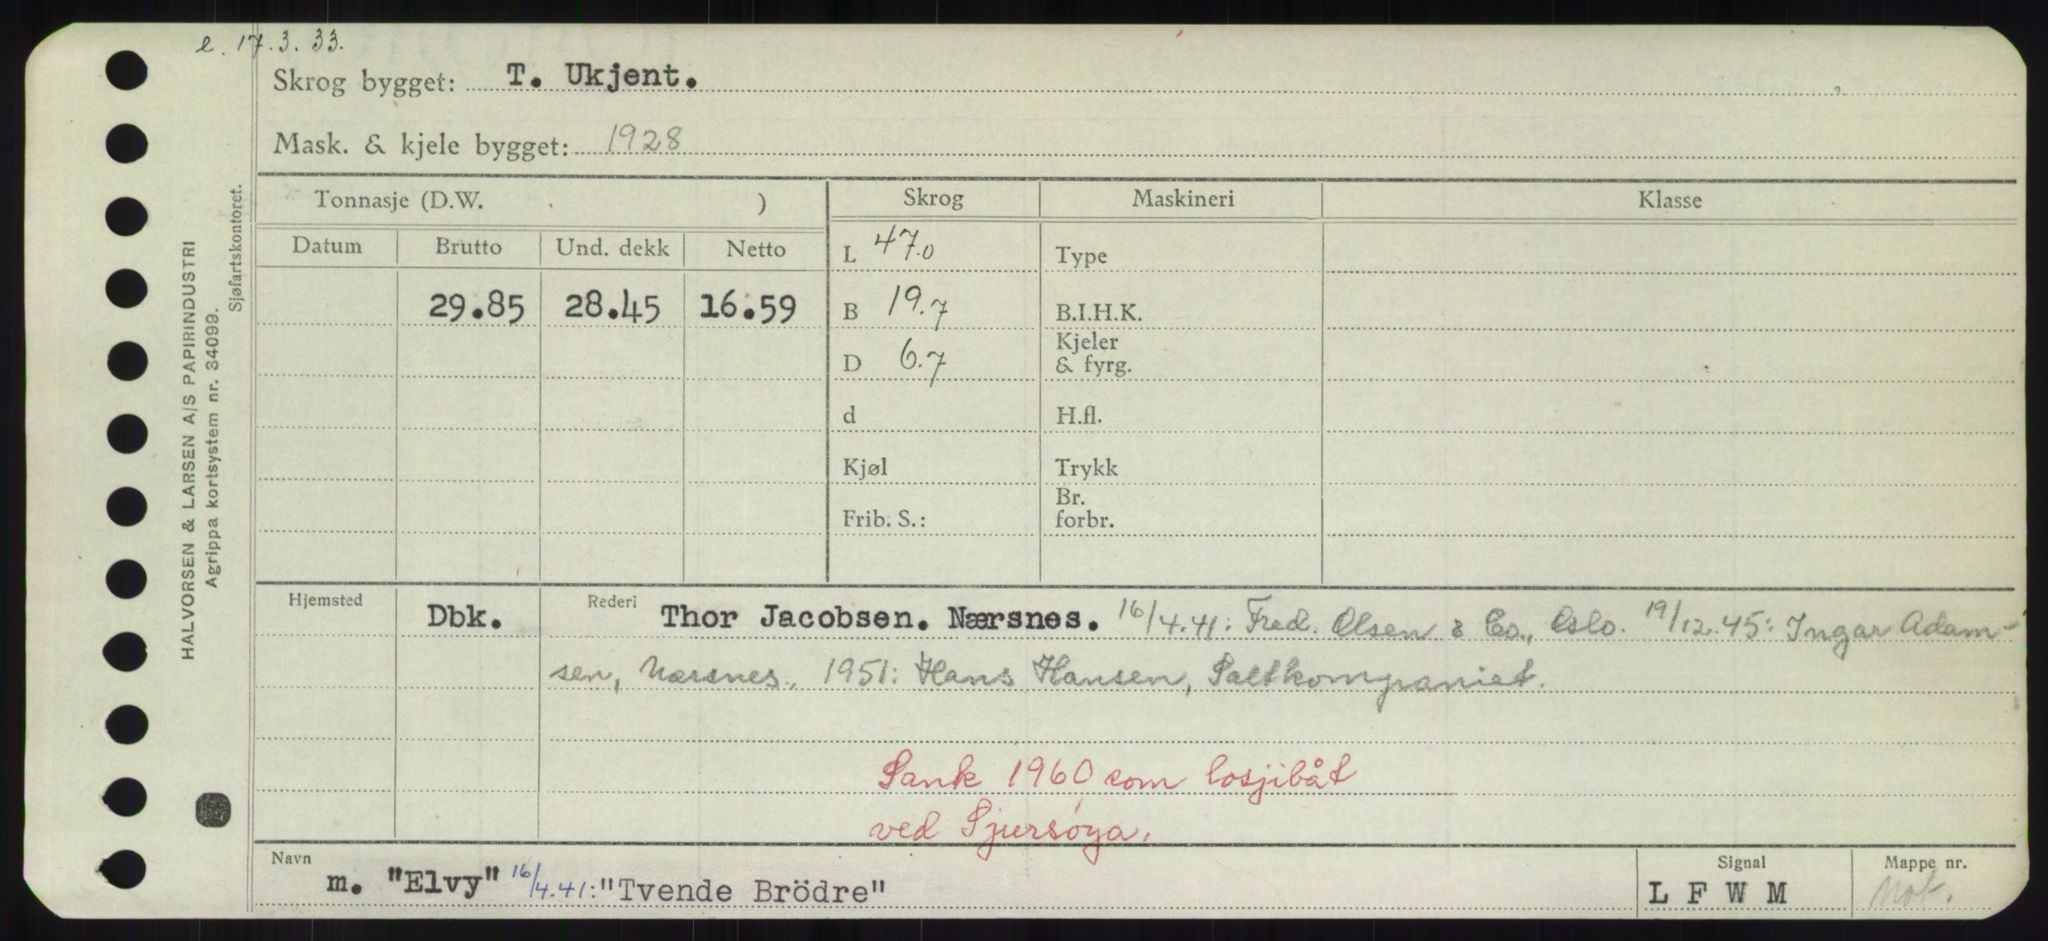 e. 17.3.33.
Skrog bygget: T. Ukjent.
Mask. & kjele bygget: 1928
HALVORSEN & LARSEN A/S PAPIRINDUSTRI
Agrippa kortsystem nr. 34099.
Sjøfartskontoret.
Tonnasje (D.W. )
Skrog Maskineri Klasse
Datum Brutto Und. dekk Netto
29.85 28.45 16.59
L 47.0
B 19.7
D 6.7
d
Kjøl
Frib. S.:
Type
B.I.H.K.
Kjeler
& fyrg.
H.fl.
Trykk
Br.
forbr.
Hjemsted Dbk. Rederi Thor Jacobsen. Nærsnes. 16/4.41: Fred. Olsen & Co., Oslo. 19/12.45: Ingar Adam-
sen, Nærsnes. 1951: Hans Hansen, Saltkompaniet.
Sank 1960 som losjibåt
ved Sjursøya.
Navn Signal Mappe nr.
m. "Elvy" 16/4.41: "Tvende Brödre" L F W M Mot.